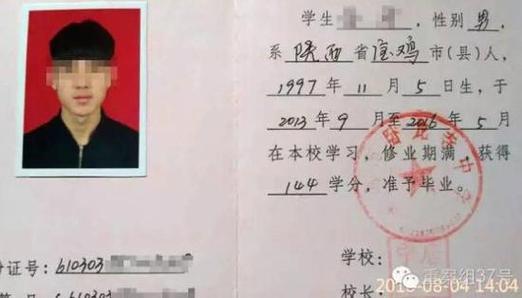 学生 ，性别 男，
系 陕西 省 宝鸡 市(县)人，
1997 年 11 月 5 日生，于
2013 年 9 月至 2016 年 5 月
在本校学习，修业期满，获得
144 学分，准予毕业。
证号：610303
学校：
校长：
重案组37号
2016-08-04 14:04